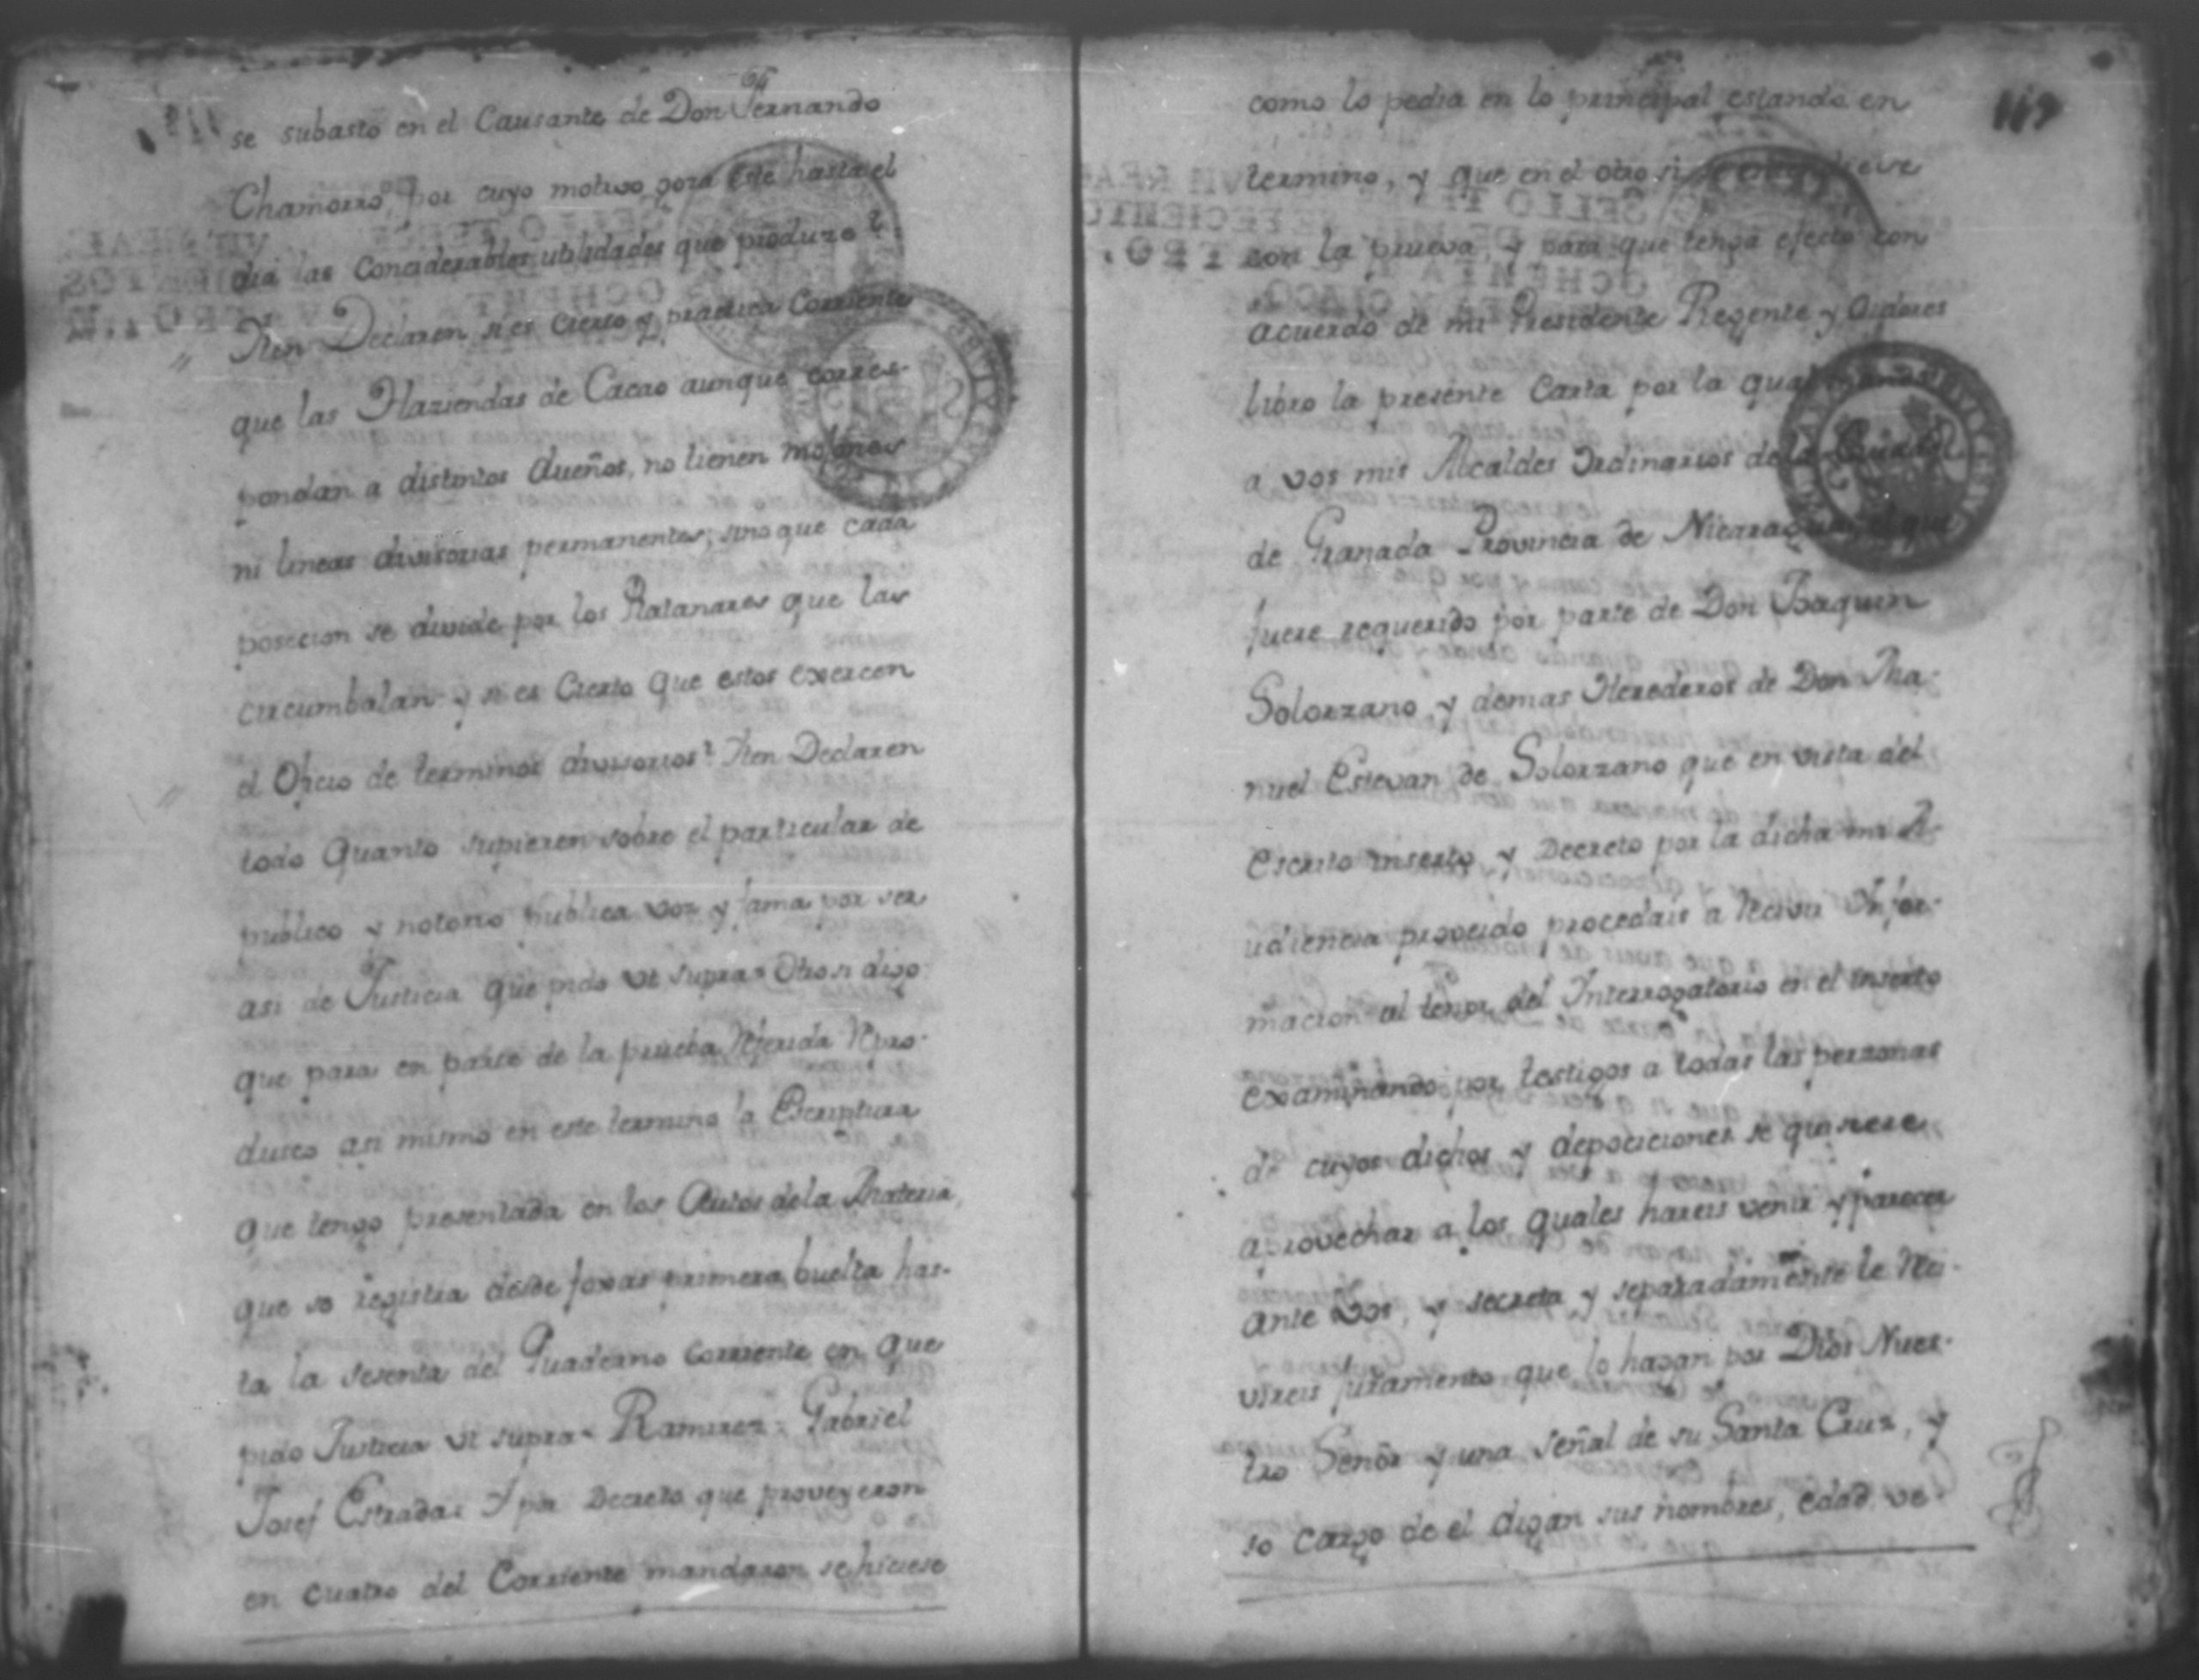 se subasto en el Causante de Don Fernando
Chamorro, por cuyo motivo goza este hasta el
dia las Conciderables utilidades que produze?
Iten Declaren si es Cierto y practica Corriente
que las Haziendas de Cacao aunque corres-
pondan a distintos dueños, no tienen mojones
ni lineas divisorias permanentes, sino que cada
posecion se divide por los Platanares que las
circumbalan y si es Cierto que estos exercen
el Oficio de terminos divisorios? Iten Declaren
todo quanto supieren sobre el particular de
publico y notorio publica voz y fama por ser
asi de Justicia que pido ut supra= Otro si digo:
que para en parte de la prueba Referida Repro-
dusco asi mismo en este termino la Escriptura
que tengo presentada en los Autos de la Materia,
que se registra desde foxas primera buelta has-
ta la sesenta del Quaderno corriente en que
pido Justicia ut supra= Ramirez= Gabriel
Josef Estrada= Y por Decreto que proveyeron
en cuatro del Corriente mandaron se hiciese
119
como lo pedia en lo principal estando en
termino, y que en el otro si
con la prueva, y para que tenga efecto con
acuerdo de mi Presidente Regente y Oidores
libro la presente Carta por la qual
a vos mis Alcaldes Ordinarios de la
de Granada Provincia de Nicaragua que
fuere requerido por parte de Don Joaquin
Solorzano, y demas Herederos de Don Ma-
nuel Estevan de Solorzano que en vista del
Escrito inserto, y Decreto por la dicha mi A-
udiencia proveido procedais a Recivir Infor-
macion al tenor del Interrogatorio en el inserto
examinando por testigos a todas las personas
de cuyos dichos y depociciones se quisiere
aprovechar a los quales hareis venir y parecer
ante vos, y secreta y separadamente le Reci-
vireis juramento que lo hagan por Dios Nues-
tro Señor y una señal de su Santa Cruz, y
so cargo de el digan sus nombres, edad, ve-